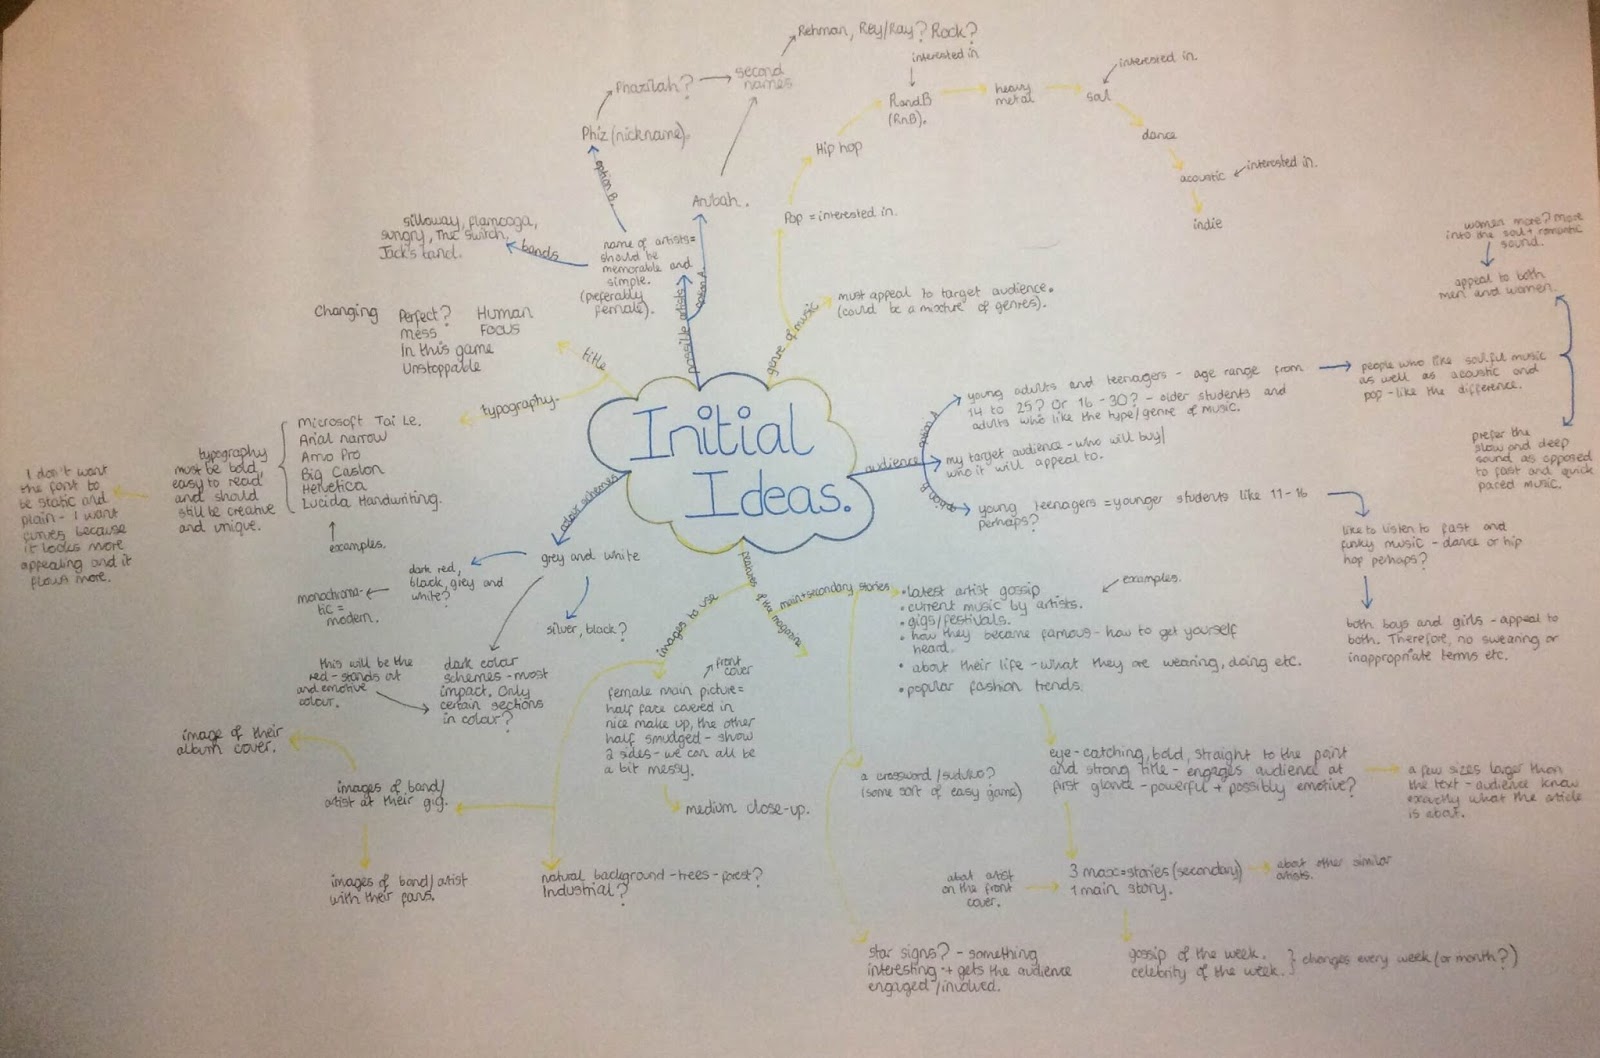 Initial
Ideas.
possible artists
option A.
Anibah.
second
names
Rehman, Rey/Ray? Rock?
name of artists=
should be
memorable and
simple.
(preferably
female).
option B.
Phiz (nickname).
Pharilah?
bands
silloway, flamcoga,
sungry, The switch,
Jack's land.
genre of music
must appeal to target audience.
(could be a mixture of genres).
Pop = interested in.
Hip hop
interested in
RandB
(RnB).
heavy
metal
interested in.
soul
dance
acoustic
interested in.
indie
audience
option A
young adults and teenagers - age range from
14 to 25? Or 16 - 30? - older students and
adults who like the type/genre of music.
people who like soulful music
as well as acoustic and
pop - like the difference.
appeal to both
men and women.
women more? more
into the soul + romantic
sound.
prefer the
slow and deep
sound as opposed
to fast and quick
paced music.
my target audience - who will buy/
who it will appeal to.
option B
young teenagers = younger students like 11-16
perhaps?
like to listen to fast and
funky music - dance or hip
hop perhaps?
both boys and girls - appeal to
both. Therefore, no swearing or
inappropriate terms etc.
features
of the magazine
main+secondary stories
examples.
• latest artist gossip
• current music by artists.
• gigs/festivals.
• how they became famous - how to get yourself
heard.
• about their life - what they are wearing, doing etc.
• popular fashion trends.
eye-catching, bold, straight to the point
and strong title - engages audience at
first glance - powerful + possibly emotive?
a few sizes larger than
the text - audience know
exactly what the article
is about.
3 max = stories (secondary)
1 main story.
about other similar
artists.
about artist
on the front
cover.
gossip of the week.
celebrity of the week.
changes every week (or month?)
a crossword/suduko?
(some sort of easy game)
star signs? - something
interesting + gets the audience
engaged/involved.
images to use
front
cover
female main picture=
half face covered in
nice make up, the other
half smudged - show
2 sides - we can all be
a bit messy.
medium close-up.
natural background - trees - forest?
Industrial?
images of band/
artist at their gig.
image of their
album cover.
images of band/artist
with their fans.
colour schemes
grey and white
silver, black?
dark red,
black, grey and
white?
monochroma-
tic =
modern.
dark colour
schemes - most
impact. Only
certain sections
in colour?
this will be the
red - stands out
and emotive
colour.
title
Changing
Perfect?
mess
In this game
Unstoppable
Human
Focus
typography-
Microsoft Tai Le.
Arial narrow
Arno Pro
Big Caslon
Helvetica
Lucida Handwriting.
examples.
typography
must be bold,
easy to read
and should
still be creative
and unique.
I don't want
the font to
be static and
plain - I want
curves because
it looks more
appealing and it
flows more.